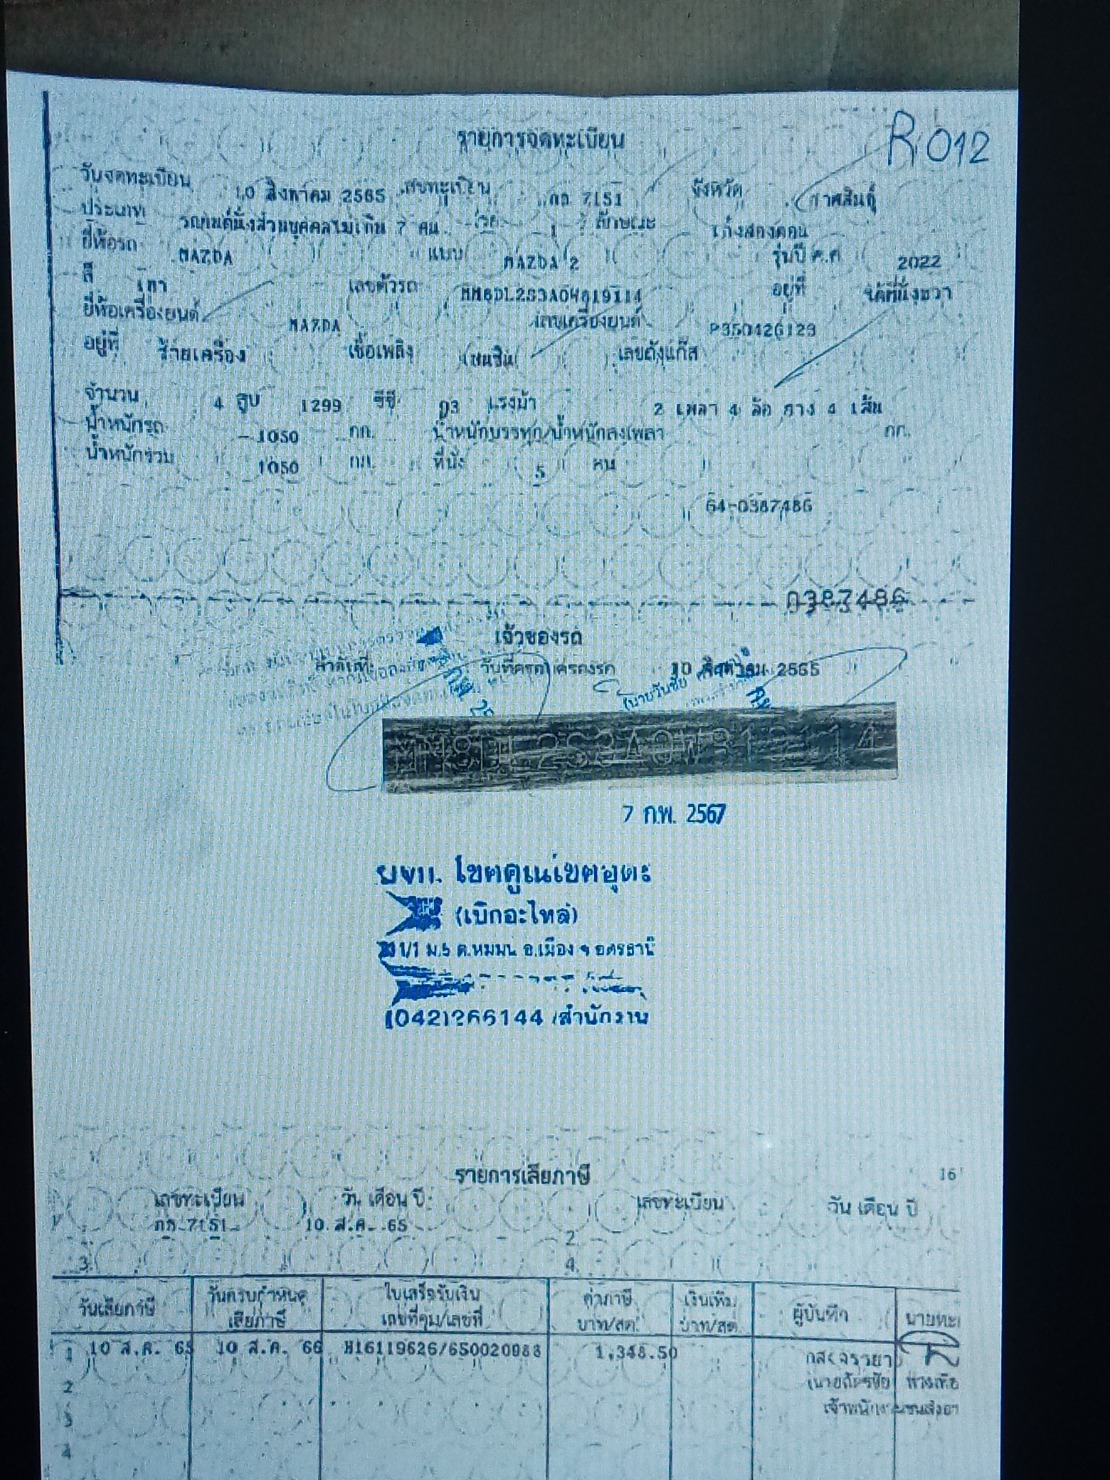 R 012
รายการจดทะเบียน
วันจดทะเบียน 10 สิงหาคม 2565 เลขทะเบียน กก 7151 จังหวัด กาฬสินธุ์
ประเภท รถยนต์นั่งส่วนบุคคลไม่เกิน 7 คน รย. 1 ลักษณะ เก๋งสองตอน
ยี่ห้อรถ MAZDA แบบ MAZDA 2 รุ่นปี ค.ศ. 2022
สี เทา เลขตัวรถ อยู่ที่ ใต้ที่นั่งขวา
ยี่ห้อเครื่องยนต์ MAZDA เลขเครื่องยนต์ P350426129
อยู่ที่ ซ้ายเครื่อง เชื้อเพลิง เบนซิน เลขถังแก๊ส
จำนวน 4 สูบ 1299 ซีซี 93 แรงม้า 2 เพลา 4 ล้อ ยาง 4 เส้น
น้ำหนักรถ 1050 กก. น้ำหนักบรรทุก/น้ำหนักลงเพลา กก.
น้ำหนักรวม 1050 กก. ที่นั่ง 5 คน
64-0387486
0387486
เจ้าของรถ
ลำดับที่ วันที่ครอบครองรถ 10 สิงหาคม 2565
7 ก.พ. 2567
(เบิกอะไหล่)
(042)266144 /สำนักงาน
รายการเสียภาษี 16
เลขทะเบียน วัน เดือน ปี เลขทะเบียน วัน เดือน ปี
1 กก 7151 10 ส.ค. 65 2
3 4
วันเสียภาษี วันครบกำหนดเสียภาษี ใบเสร็จรับเงิน เลขที่คุม/เลขที่ ค่าภาษี บาท/สต. เงินเพิ่ม บาท/สต. ผู้บันทึก นายทะเ
1 10 ส.ค. 65 10 ส.ค. 66 H16119626/650020988 1,348.50
2
เจ้าพนักงานขนส่งอา
3
4